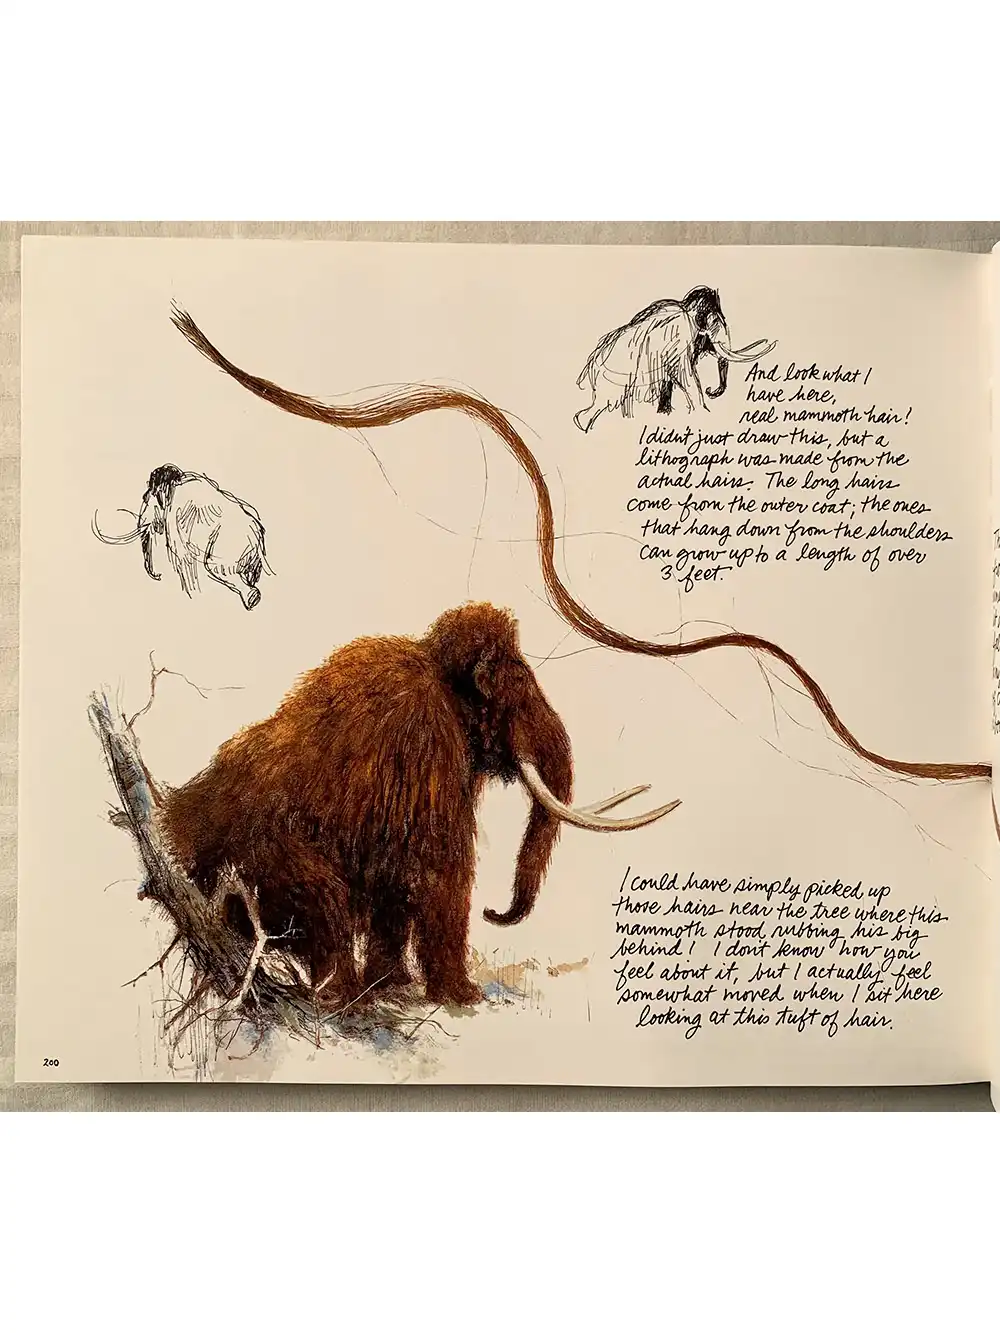 And look what I
have here,
real mammoth hair!
I didn't just draw this, but a
lithograph was made from the
actual hairs. The long hairs
come from the outer coat; the ones
that hang down from the shoulders
can grow up to a length of over
3 feet.
I could have simply picked up
those hairs near the tree where this
mammoth stood rubbing his big
behind! I don't know how you
feel about it, but I actually feel
somewhat moved when I sit here
looking at this tuft of hair.
200